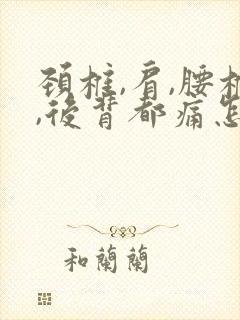 颈椎,肩,腰椎
,後背都痛怎
和蘭蘭